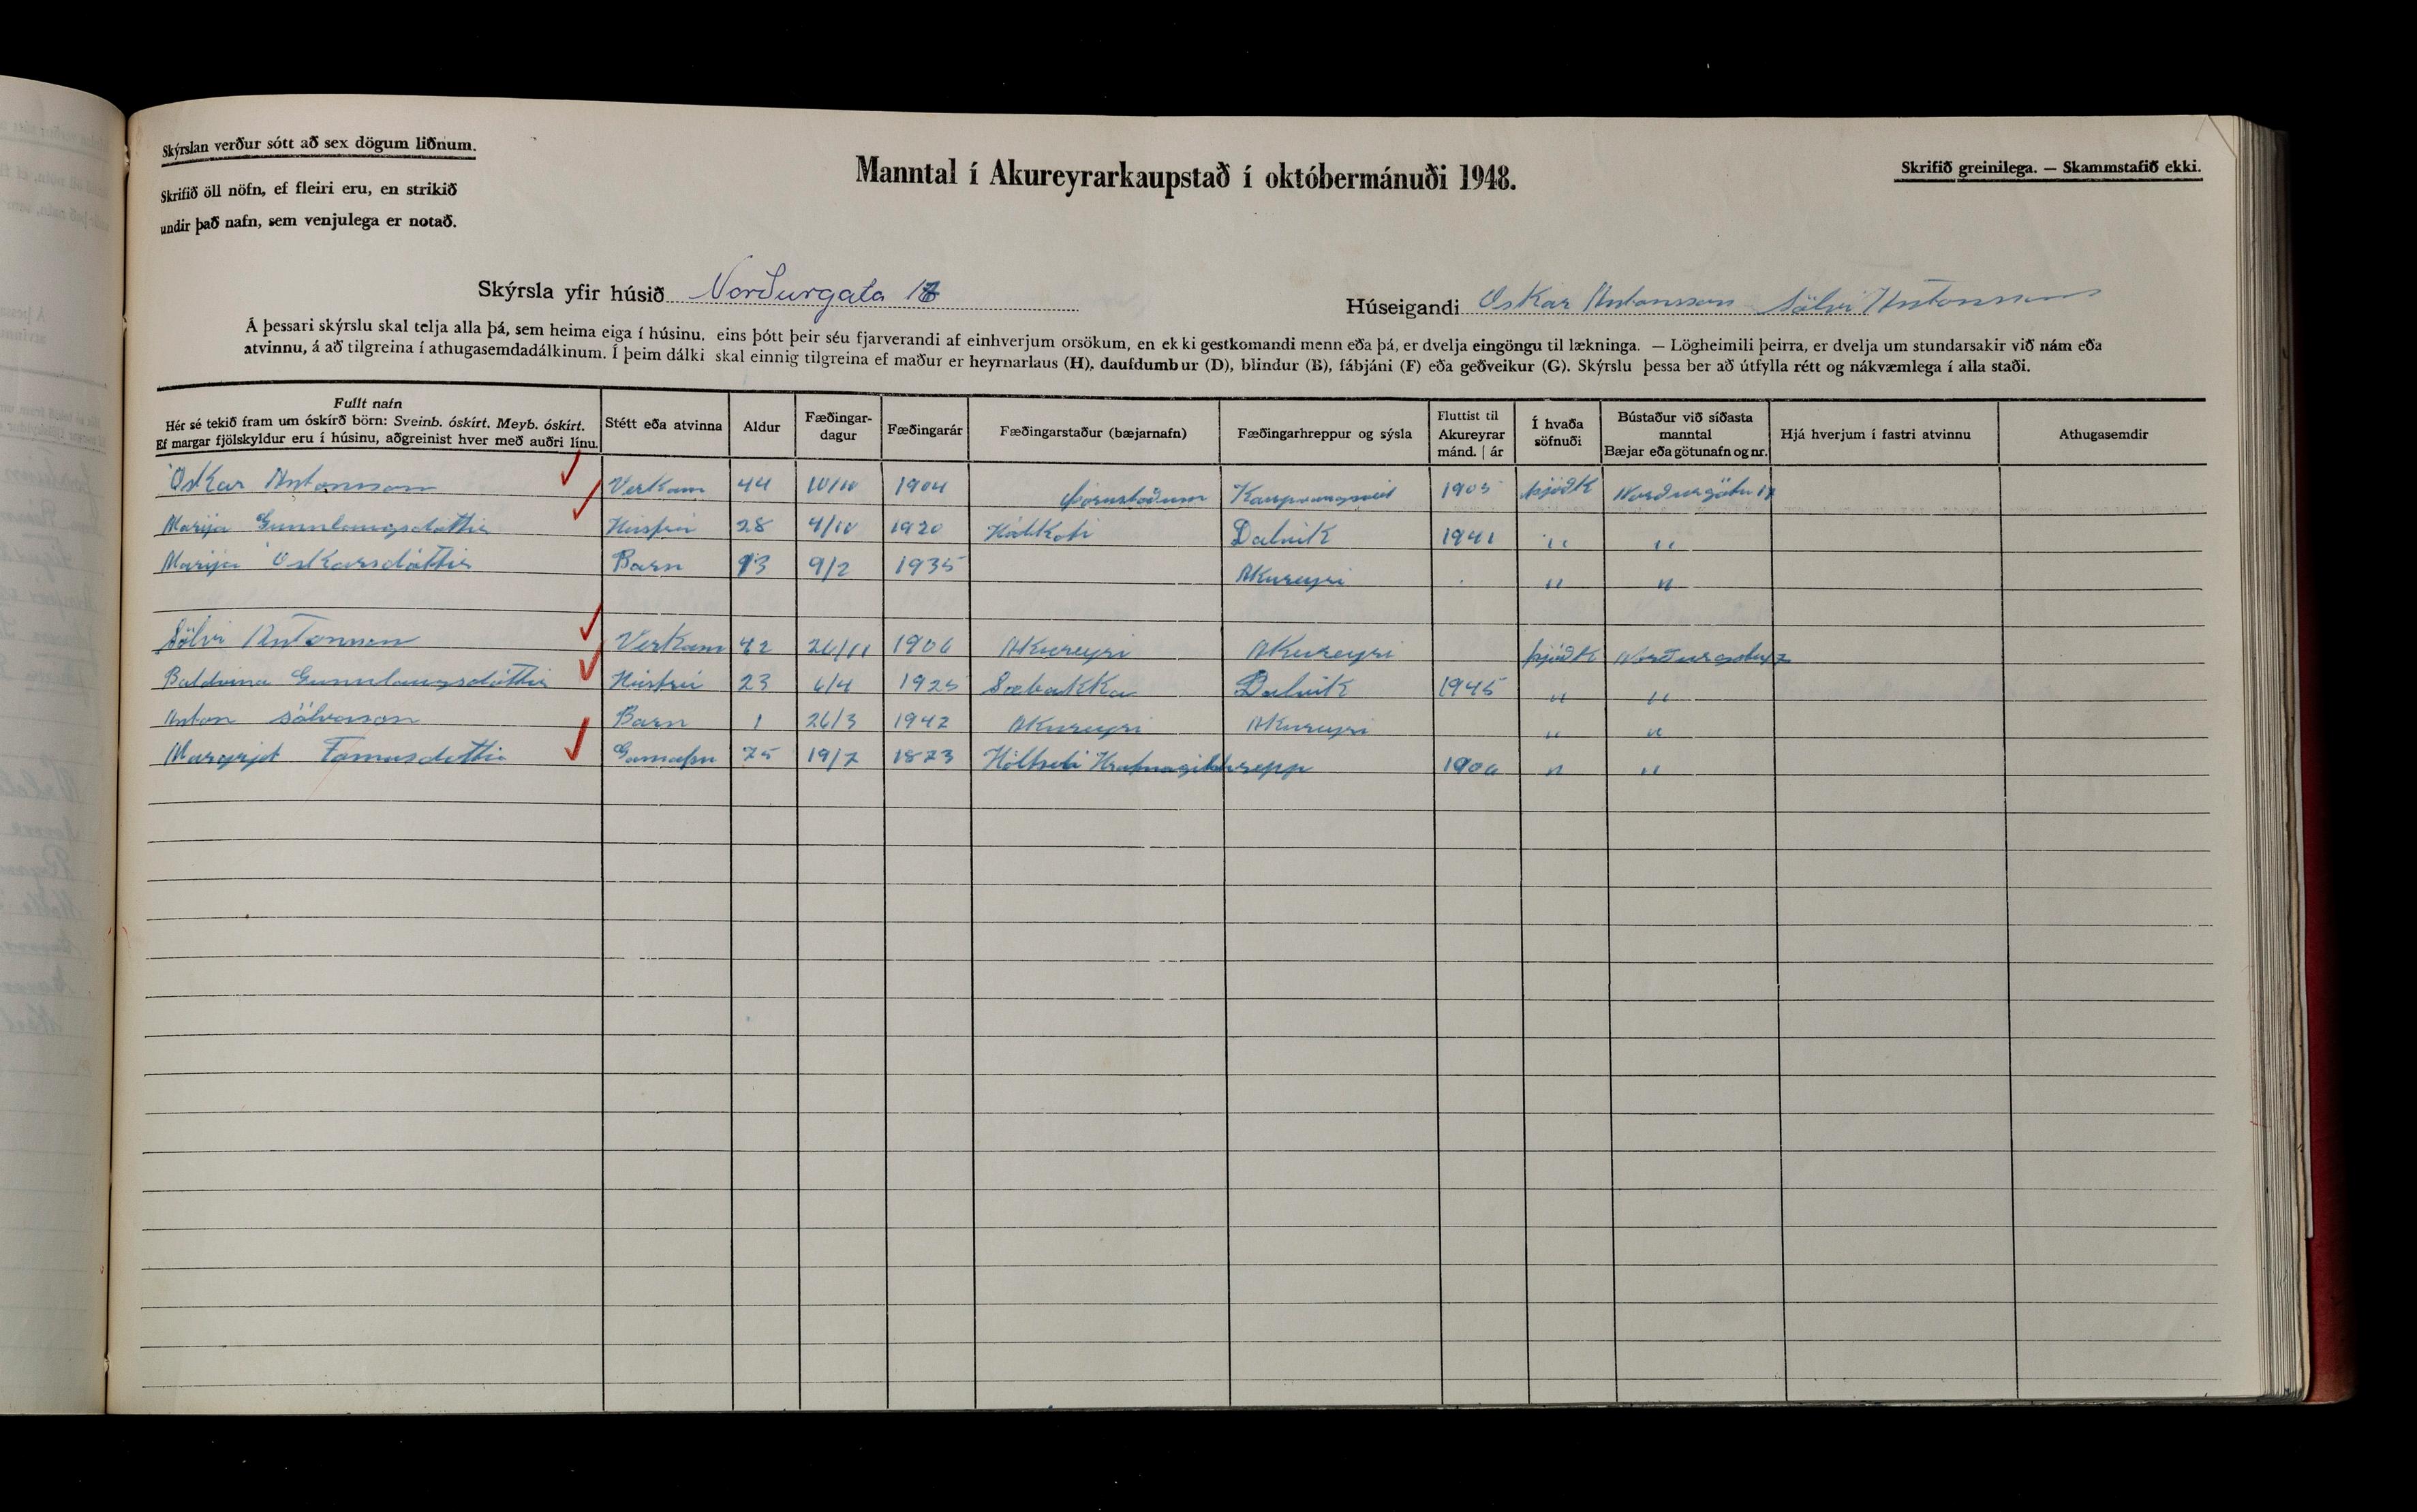 Skýrslan verður sótt að sex dögum liðnum.
Skrifið öll nöfn, ef fleiri eru, en strikið
undir það nafn, sem venjulega er notað.
Manntal í Akureyrarkaupstað í októbermánuði 1948.
Skrifið greinilega. — Skammstafið ekki.
Skýrsla yfir húsið Norðurgata 17
Húseigandi Oskar Antonsson Sölvi Antonsson
Á þessari skýrslu skal telja alla þá, sem heima eiga í húsinu, eins þótt þeir séu fjarverandi af einhverjum orsökum, en ekki gestkomandi menn eða þá, er dvelja eingöngu til lækninga. — Lögheimili þeirra, er dvelja um stundarsakir við nám eða
atvinnu, á að tilgreina í athugasemdadálkinum. Í þeim dálki skal einnig tilgreina ef maður er heyrnarlaus (H), daufdumbur (D), blindur (B), fábjáni (F) eða geðveikur (G). Skýrslu þessa ber að útfylla rétt og nákvæmlega í alla staði.
Fullt nafn
Hér sé tekið fram um óskírð börn: Sveinb. óskírt. Meyb. óskírt.
Ef margar fjölskyldur eru í húsinu, aðgreinist hver með auðri línu.
Stétt eða atvinna
Aldur
Fæðingar-
dagur
Fæðingarár
Fæðingarstaður (bæjarnafn)
Fæðingarhreppur og sýsla
Fluttist til
Akureyrar
mánd. | ár
Í hvaða
söfnuði
Bústaður við síðasta
manntal
Bæjar eða götunafn og nr.
Hjá hverjum í fastri atvinnu
Athugasemdir
Óskar Antonsson Verkam 44 10/10 1904 1905 Þjóðk Norðurgötu 17
Marija Gunnlaugsdottir Húsfrú 28 4/10 1920 Dalvik 1941 " "
Marija Oskarsdóttir Barn 13 9/2 1935 Akureyri " "
Sölvi Antonsson Verkam 42 1906 Akureyri Akureyri Þjóðk
Baldvina Gunnlaugsdóttir Húsfrú 23 6/4 1925 Sæbakka Dalvik 1945 " "
Anton Sölvason Barn 1 26/3 1947 Akureyri Akureyri " "
Margrjet Tomasdottir 75 19/7 1873 Hrafnagilshrepp 1906 " "